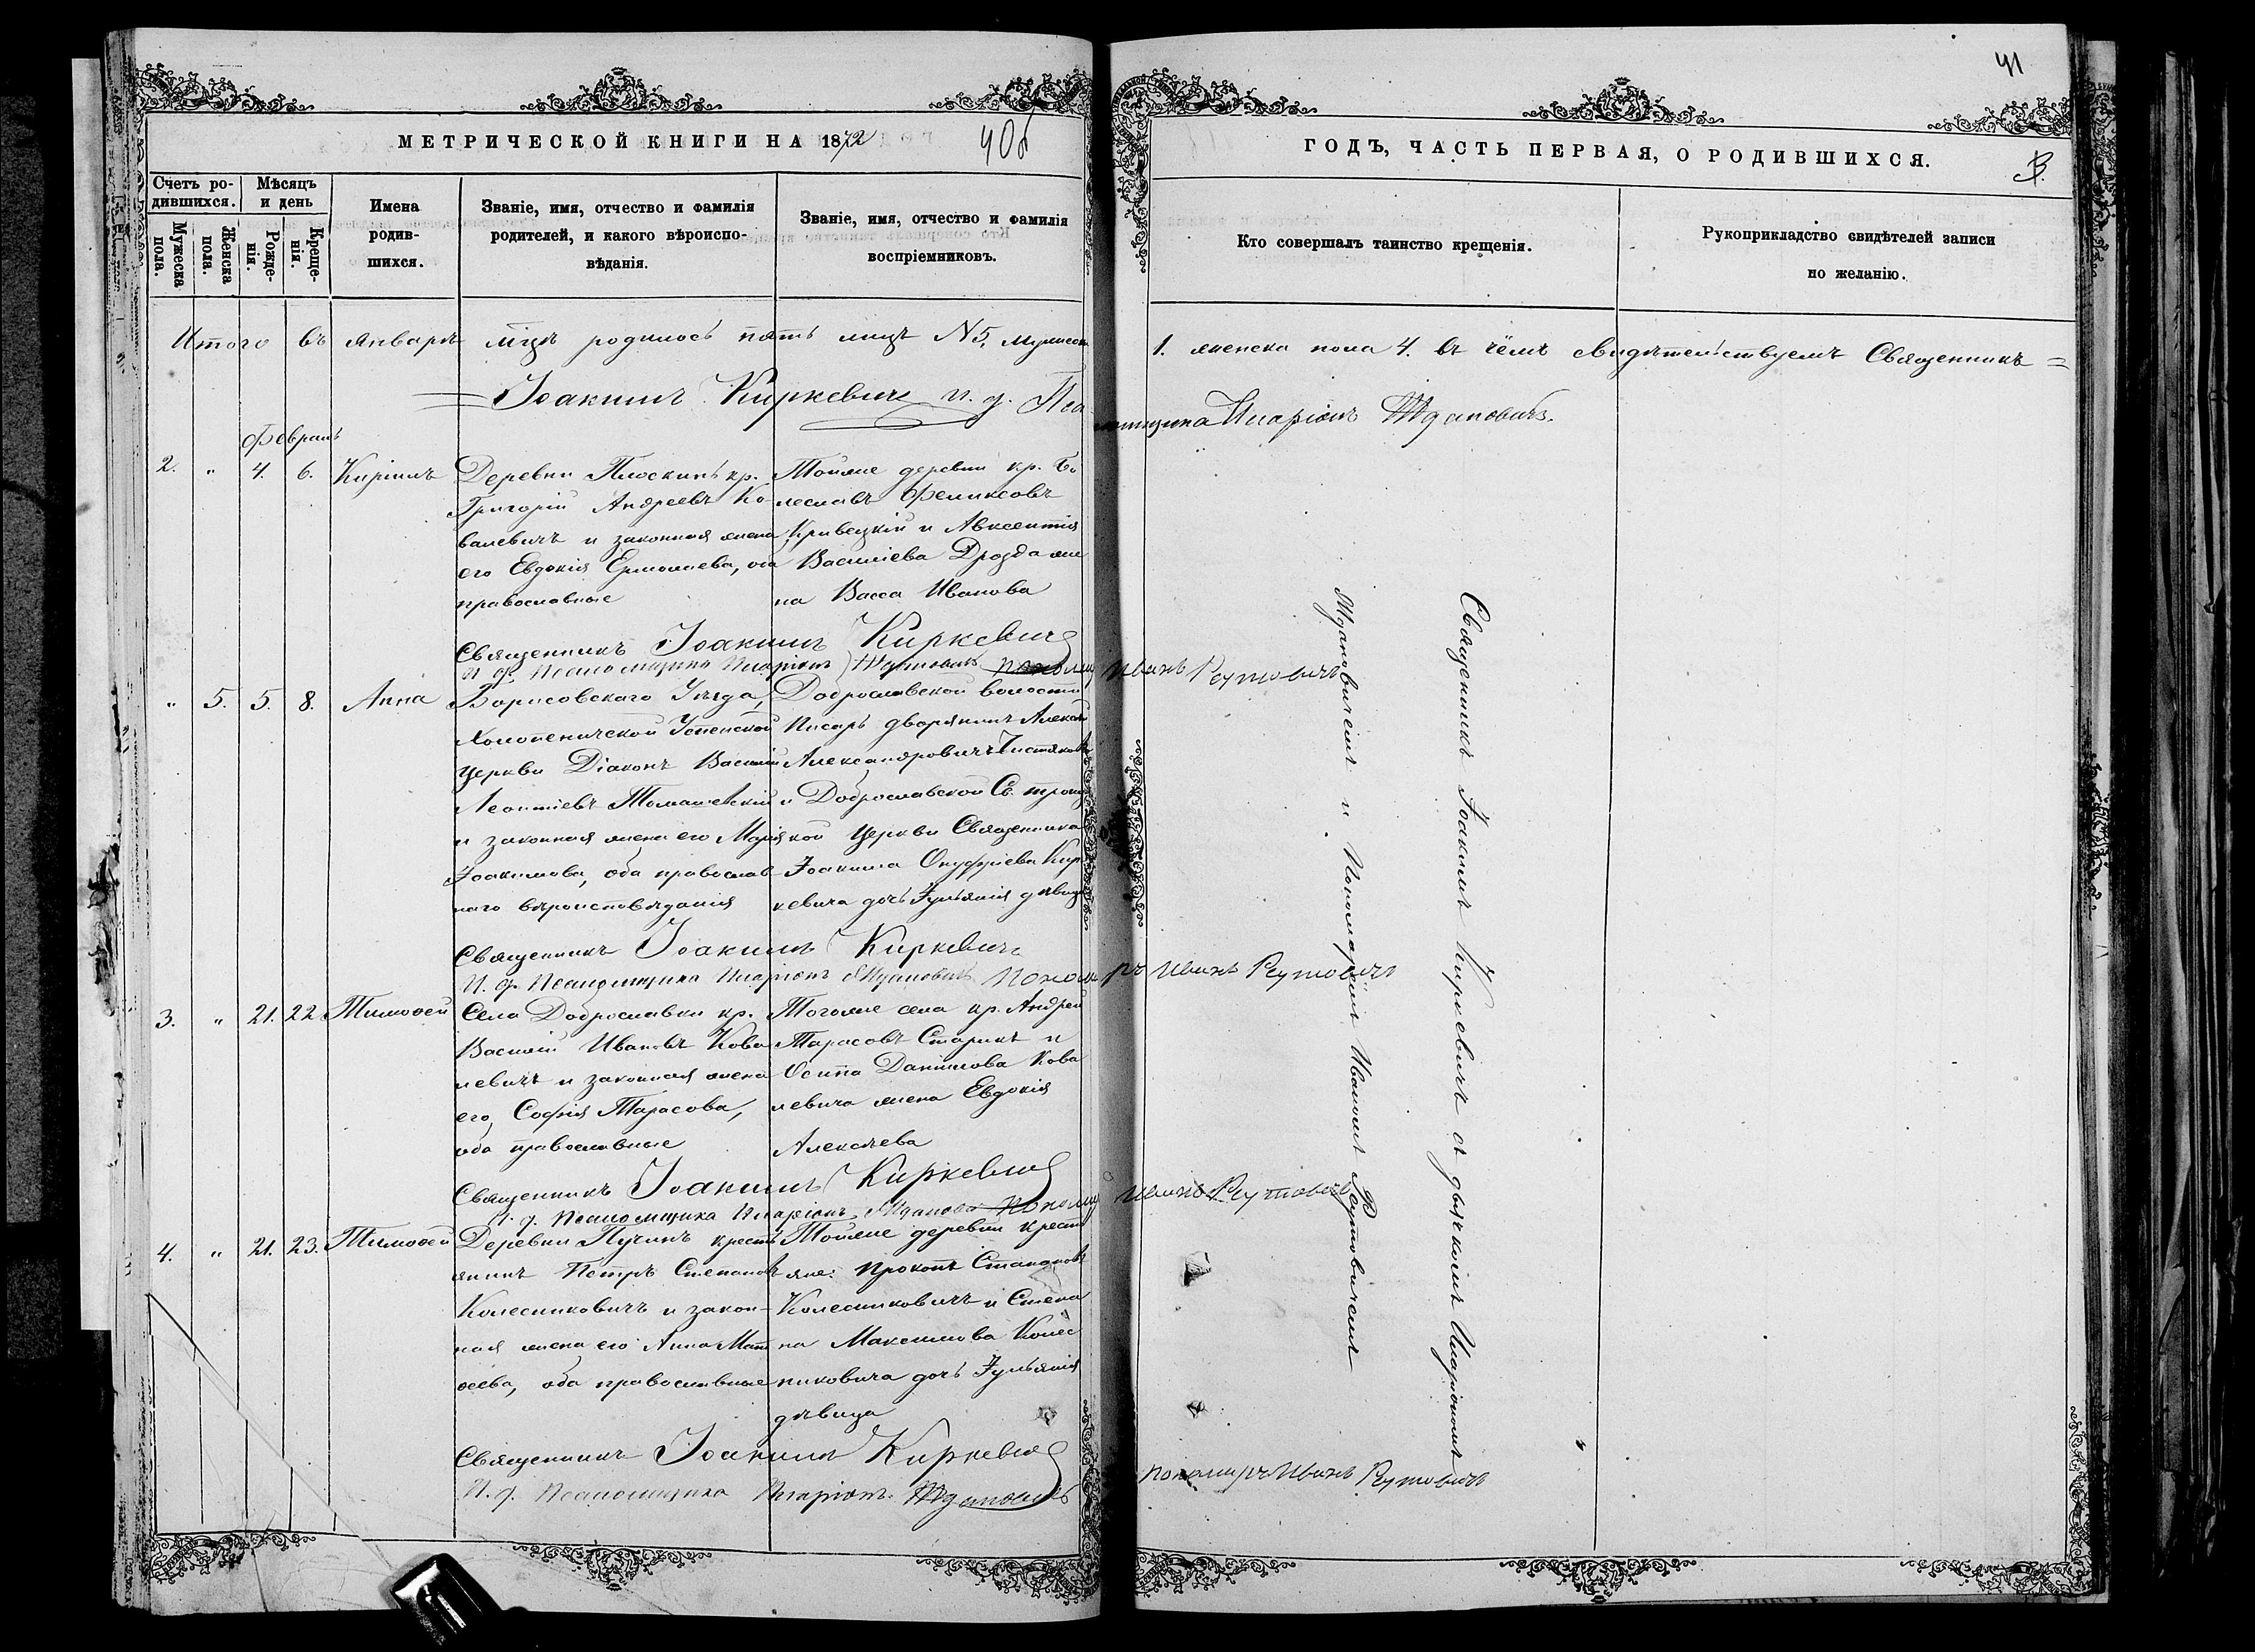 41
МЕТРИЧЕСКОЙ КНИГИ НА 1872
40об
ГОДЪ, ЧАСТЬ ПЕРВАЯ, О РОДИВШИХСЯ.
Счетъ ро-
дившихся.
Мѣсяцъ
и день
Мужеска
пола.
Женска
пола.
Рожде-
нія.
Креще-
нія.
Имена
родив-
шихся.
Званіе, имя, отчество и фамилія
родителей, и какого вѣроиспо-
вѣданія.
Званіе, имя, отчество и фамилія
воспріемниковъ.
Кто совершалъ таинство крещенія.
Рукоприкладство свидѣтелей записи
по желанію.
Итого въ январѣ мцѣ родилось пять лицъ N5, мужеска
1. женска пола 4. въ чёмъ свидѣтельствуемъ Священникъ =
= Іоакимъ Киркевичъ и. д. Пса
ломщика Иларіонъ Ждановичъ.
Февраль
2. " 4. 6. Кирилъ
Деревни Плоскинь кр.
Григорій Андреевъ Ко-
валевичъ и законная жена
его Евдокія Ермолаева, оба
православные
Тойже деревни кр. Бо
леславъ Феликсовъ
Кривецкій и Авксентія
Василіева Дрозда же
на Васса Иванова
Священникъ Іоакимъ Киркевичъ
И. д. Псаломщика Иларіонъ Ждановичъ Иванъ Реутовичъ
" 5. 5. 8. Анна
Борисовскаго Уѣзда,
Холопеничской Успенской
Церкви Діаконъ Василій
Леонтіевъ Томашевскій
и законная жена его Марія
Іоакимова, оба православ
наго вѣроисповѣданія
Доброславской волости
Писарь дворянинъ Алексѣй
Александровичъ Чистяковъ
и Доброславской Св. троиц
кой Церкви Священника
Іоакима Онуфріева Кир
кевича дочь Іуліанія дѣвица
Священникъ Іоакимъ Киркевичъ
И. д. Псаломщика Иларіонъ Ждановичъ Пономарь Иванъ Реутовичъ
3. " 21. 22. Тимофей
Села Доброславки кр.
Василій Ивановъ Кова
левичъ и законная жена
его, Софія Тарасова,
оба православные
Тогоже села кр. Андрей
Тарасовъ Старикъ и
Осипа Данилова Кова
левича жена Евдокія
Алексѣева
Священникъ Іоакимъ Киркевичъ
И. д. Псаломщика Иларіонъ Ждановичъ Иванъ Реутовичъ
4. " 21. 23. Тимофей
Деревни Пучинъ кресть
янинъ Петръ Степановъ
Колесниковичъ и закон-
ная жена его Анна Мат
ѳеева, оба православные
Тойже деревни крест
яне: Прокопъ Степановъ
Колесниковичъ и Степа
на Максимова Колес
никовича дочь Іуліанія
дѣвица
Священникъ Іоакимъ Киркевичъ
И. д. Псаломщика Иларіонъ Ждановичъ
пономарь Иванъ Реутовичъ
Священникъ Іоакимъ Киркевичъ съ дьячкомъ Иларіономъ
Ждановичемъ и Пономаремъ Иваномъ Реутовичемъ